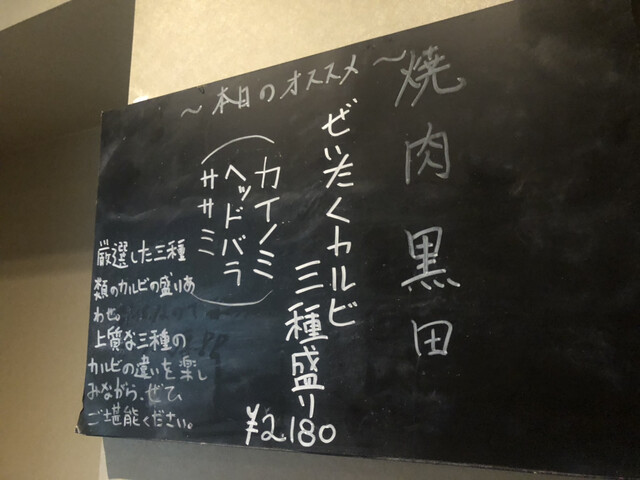 焼肉 黒田
〜本日のオススメ〜
ぜいたくカルビ
三種盛り
¥2,180
(カイノミ
ヘッドバラ
ササミ)
厳選した三種
類のカルビの盛りあ
わせ。
上質な三種の
カルビの違いを楽し
みながら、ぜひ、
ご堪能ください。